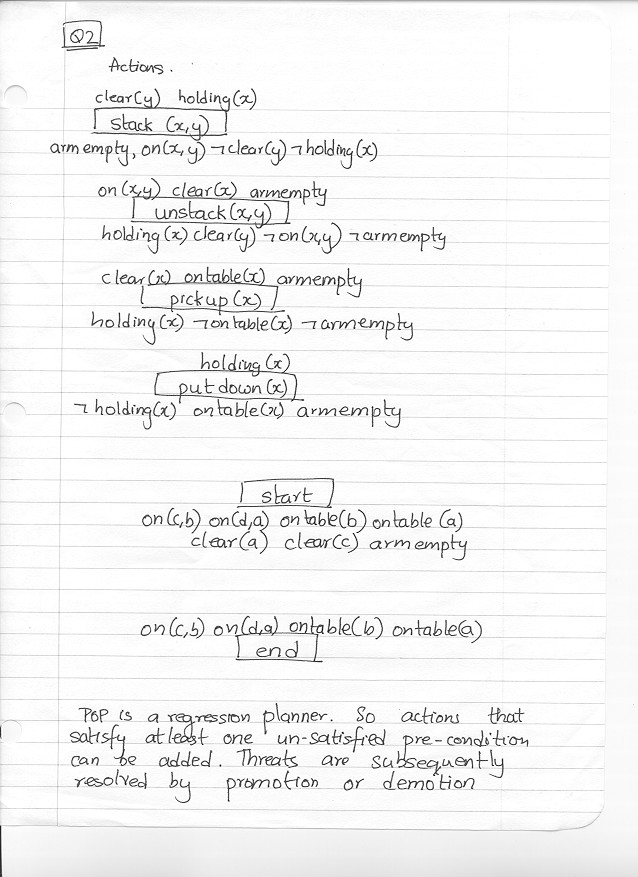 Q2
Actions.
clear(y) holding(x)
stack (x,y)
armempty, on(x,y) ¬clear(y) ¬holding(x)
on(x,y) clear(x) armempty
unstack(x,y)
holding(x) clear(y) ¬on(x,y) ¬armempty
clear(x) ontable(x) armempty
pickup(x)
holding(x) ¬ontable(x) ¬armempty
holding(x)
putdown(x)
¬holding(x) ontable(x) armempty
start
on(c,b) on(d,a) ontable(b) ontable(a)
clear(a) clear(c) armempty
on(c,b) on(d,a) ontable(b) ontable(a)
end
POP is a regression planner. So actions that
satisfy at least one un-satisfied pre-condition
can be added. Threats are subsequently
resolved by promotion or demotion